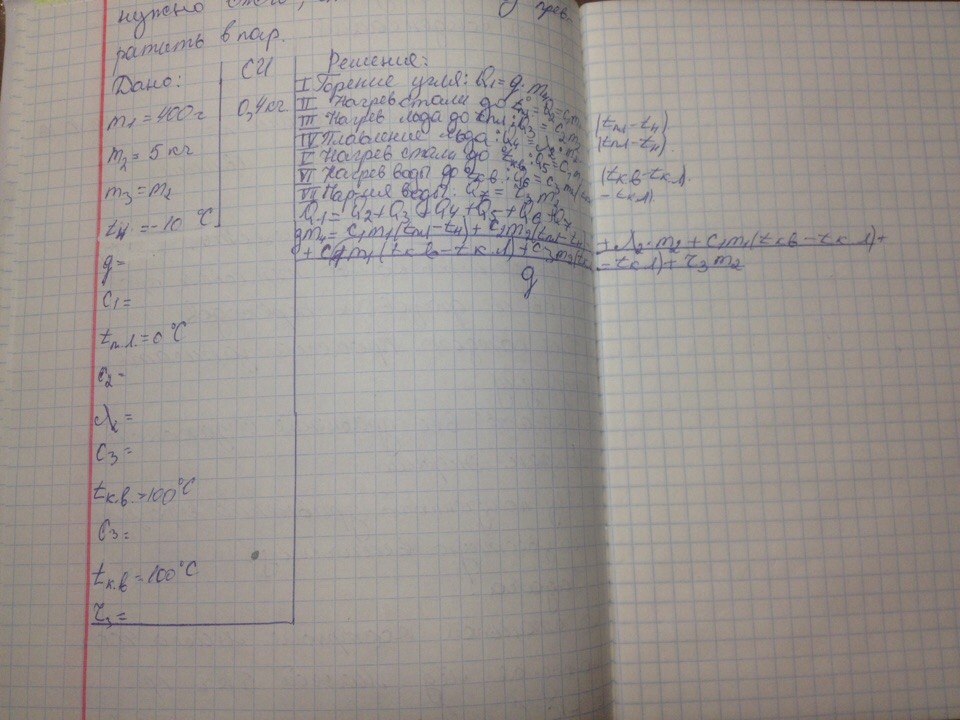 нужно
ратить в пар.
Дано:
СИ
m₁ = 400 г
0,4 кг
m₂ = 5 кг
m₃ = m₂
tн = -10 °C
g =
c₁ =
tпл. = 0 °C
c₂ -
λ₂ =
c₃ =
tк.в. = 100 °C
c₃ =
tк.в = 100 °C
τ₃ =
Решения:
I Горение угля: Q₁ = g · m₄
II Нагрев стали до tпл: Q₂ = c₁m₁ (tпл - tн)
III Нагрев льда до tпл: Q₃ = c₂m₂ (tпл - tн).
IV Плавление льда: Q₄ = λ₂ · m₂
V Нагрев стали до tкв: Q₅ = c₁m₁ (tк.в - tк.л).
VI Нагрев воды до tкв: Q₆ = c₃m₂ - tк.л).
VII Пар-ия воды: Q₇ = τ₃m₂
Q₁ = Q₂ + Q₃ + Q₄ + Q₅ + Q₆ + Q₇
gm₄ = c₁m₁(tпл - tн) + c₂m₂(tпл - tн) + λ₂ · m₂ + c₁m₁(tкв - tк л) +
+ c₁m₁(tкв - tк.л) + c₃m₂(tкв - tк л) + τ₃m₂
g